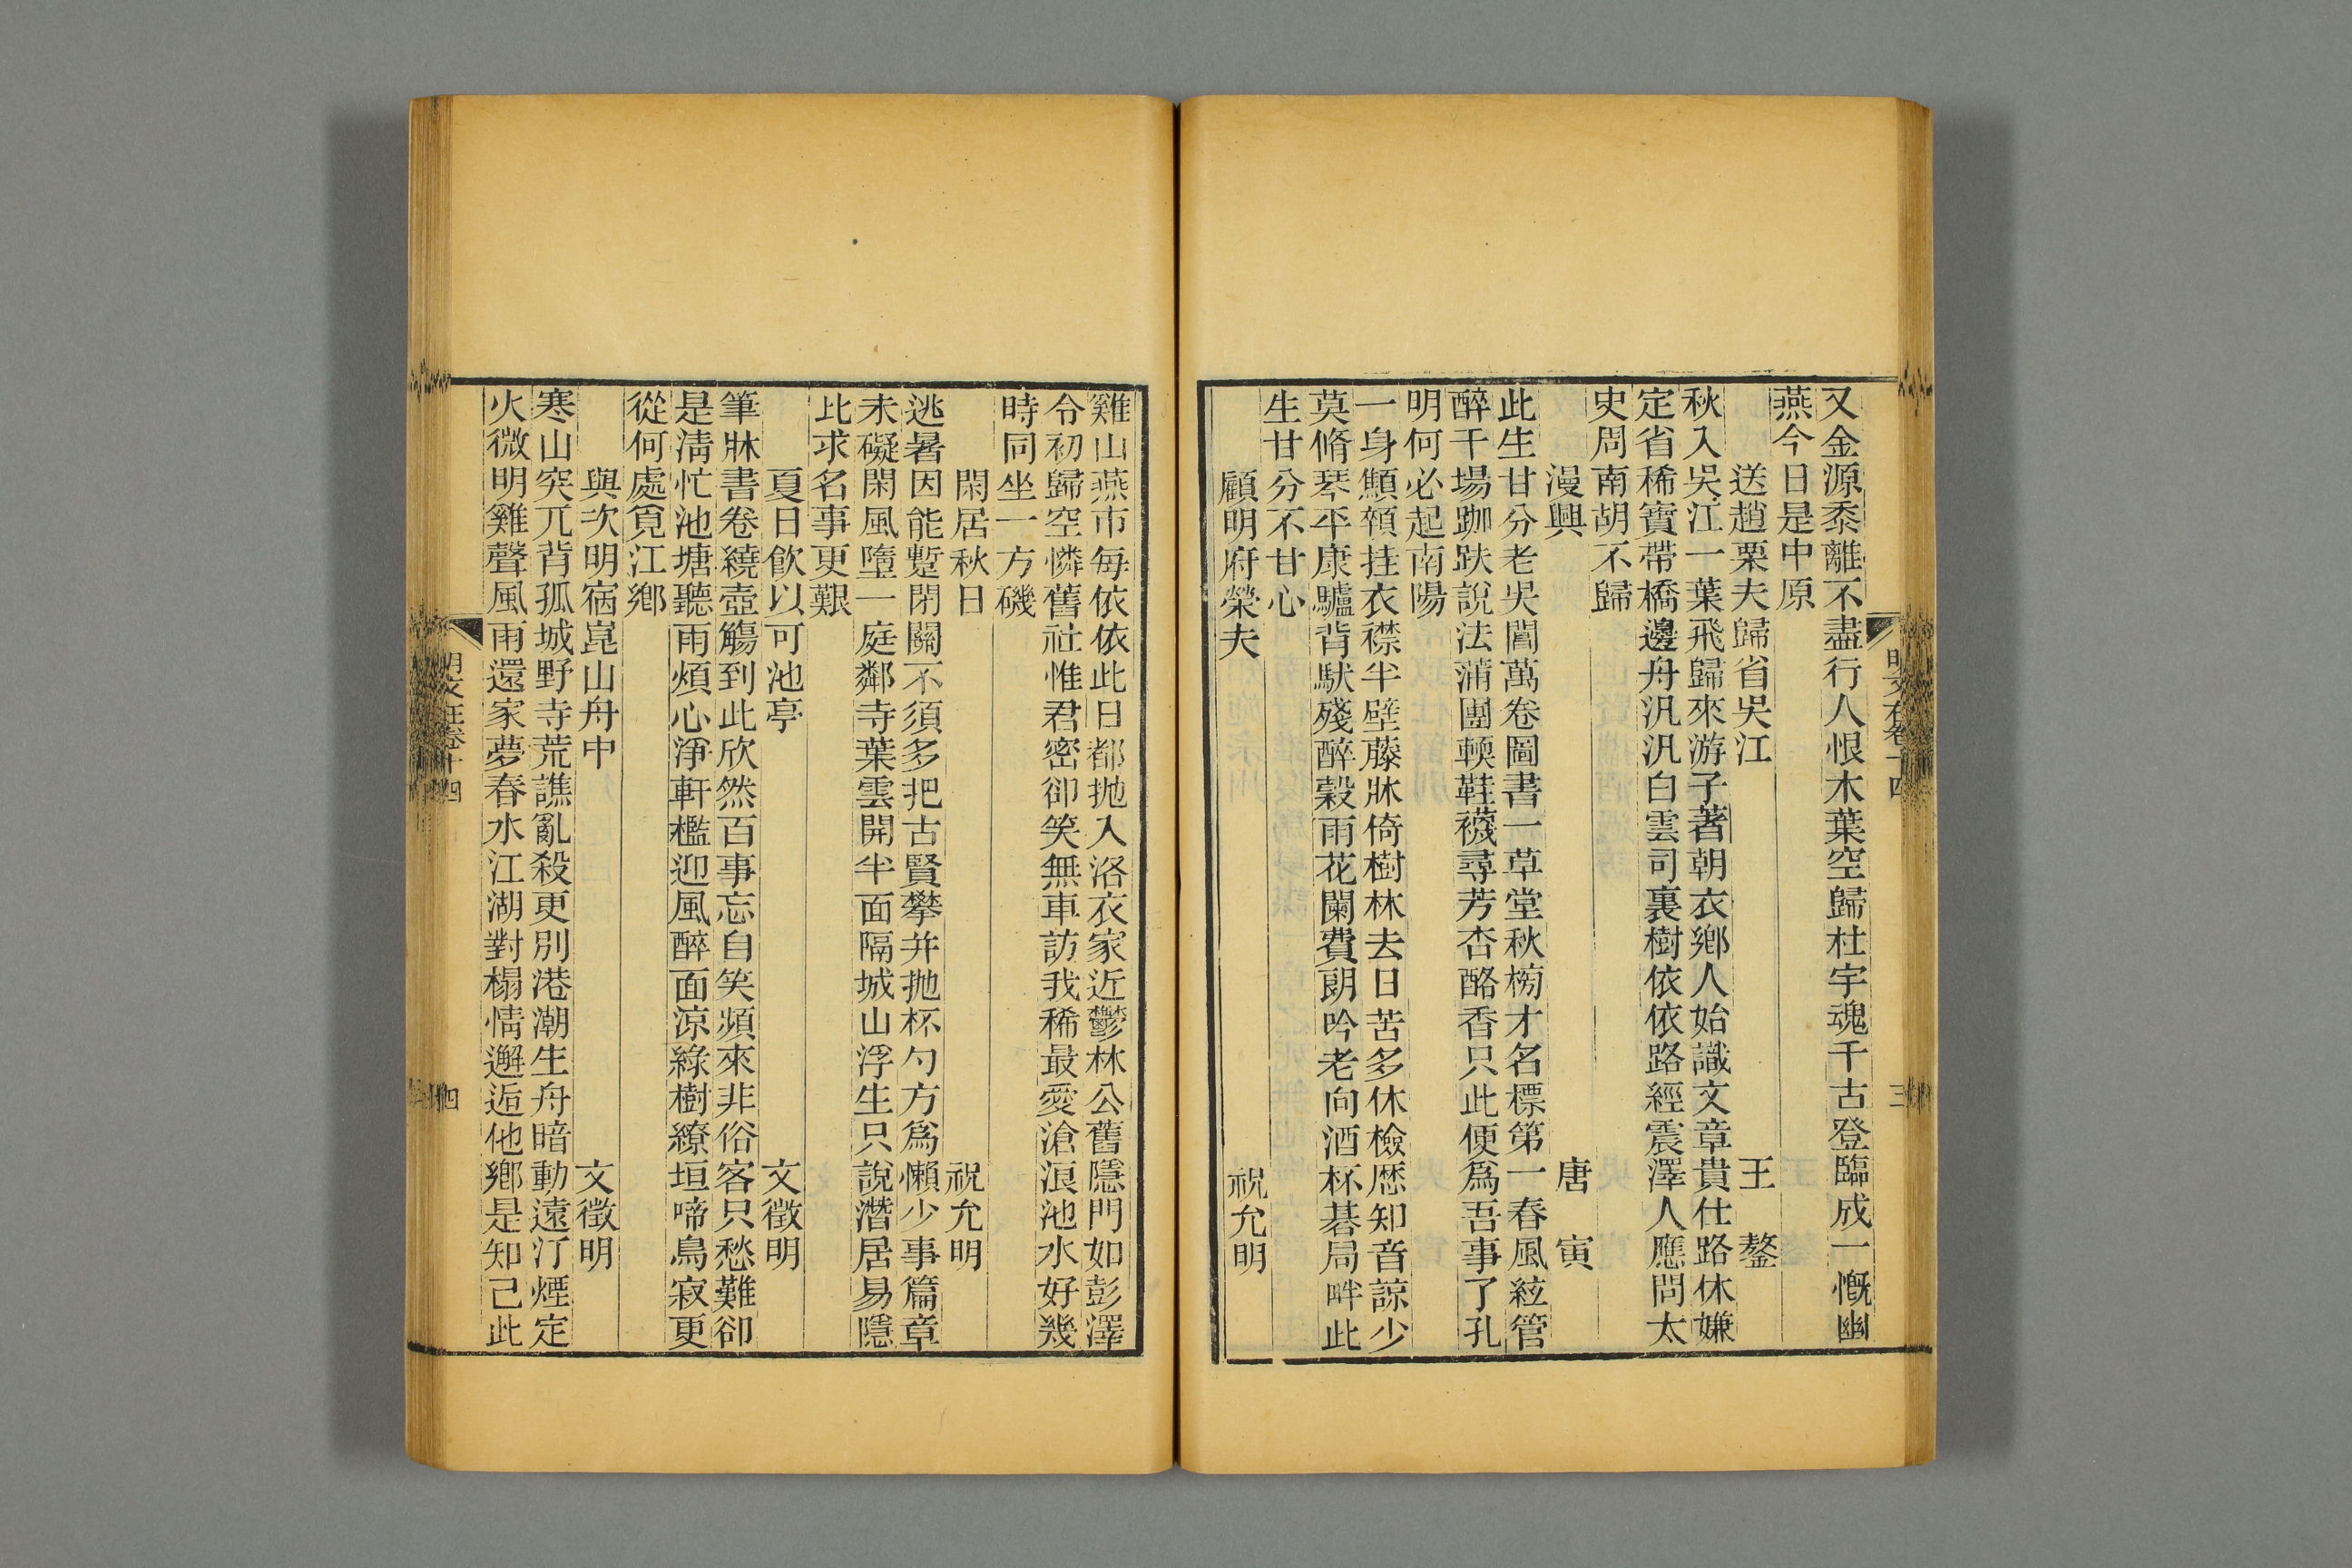 又金源黍離不盡行人恨木葉空歸杜宇魂千古登臨成一慨幽
燕今日是中原
送趙栗夫歸省吳江 王鏊
秋入吳江一葉飛歸來游子著朝衣鄉人始識文章貴仕路休嫌
定省稀寶帶橋邊舟汎汎白雲司裏樹依依路經震澤人應問太
史周南胡不歸
漫興 唐寅
此生甘分老吳閶萬卷圖書一草堂秋榜才名標第一春風絃管
醉千場跏趺說法蒲團輭鞋襪尋芳杏酪香只此便爲吾事了孔
明何必起南陽
一身顦顇挂衣襟半壁藤牀倚樹林去日苦多休檢歷知音諒少
莫脩琴平康驢背馱殘醉穀雨花闌費朗吟老向酒杯碁局畔此
生甘分不甘心
顧明府榮夫 祝允明
雞山燕市每依依此日都抛入洛衣家近鬱林公舊隱門如彭澤
令初歸空憐舊社惟君密卻笑無車訪我稀最愛滄浪池水好幾
時同坐一方磯
閑居秋日 祝允明
逃暑因能蹔閉關不須多把古賢攀并抛杯勺方爲懶少事篇章
未礙閑風墮一庭鄰寺葉雲開半面隔城山浮生只說潛居易隱
比求名事更艱
夏日飮以可池亭 文徵明
筆牀書卷繞壺觴到此欣然百事忘自笑頻來非俗客只愁難卻
是淸忙池塘聽雨煩心淨軒檻迎風醉面涼綠樹繚垣啼鳥寂更
從何處覓江鄉
與次明宿崑山舟中 文徵明
寒山突兀背孤城野寺荒譙亂殺更別港潮生舟暗動遠汀煙定
火微明雞聲風雨還家夢春水江湖對榻情邂逅他鄉是知己此
卷十四 四